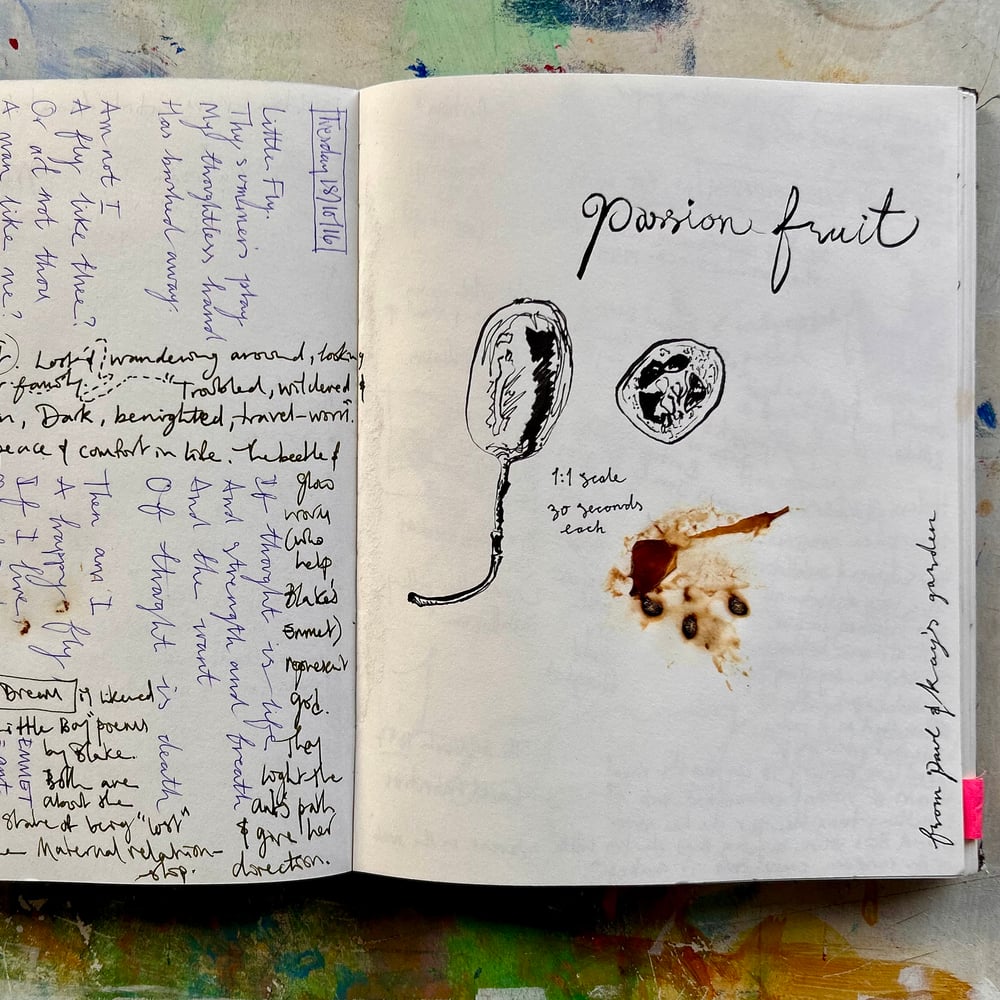 Tuesday 18/10/16
Little Fly.
Thy summer's play
My thoughtless hand
Has brushed away.
Am not I
A fly like thee?
Or art not thou
A man like me?
If thought is life
And strength and breath
And the want
Of thought is death
Then am I
A happy fly
If I live,
Lost & wandering around, looking
family "Troubled, wildered &
Dark, benighted, travel-worn".
peace & comfort in life. The beetle &
glow
worm
(who
help
Blake's
Emmet)
represent
god.
They
light the
ants path
& give her
direction.
Dream is likened
Little Boy" poems
by Blake.
Both are
about the
state of being "lost"
Maternal relation-
ship.
EMMET
ant
Passion fruit
1:1 scale
30 seconds
each
from Paul & Kay's garden